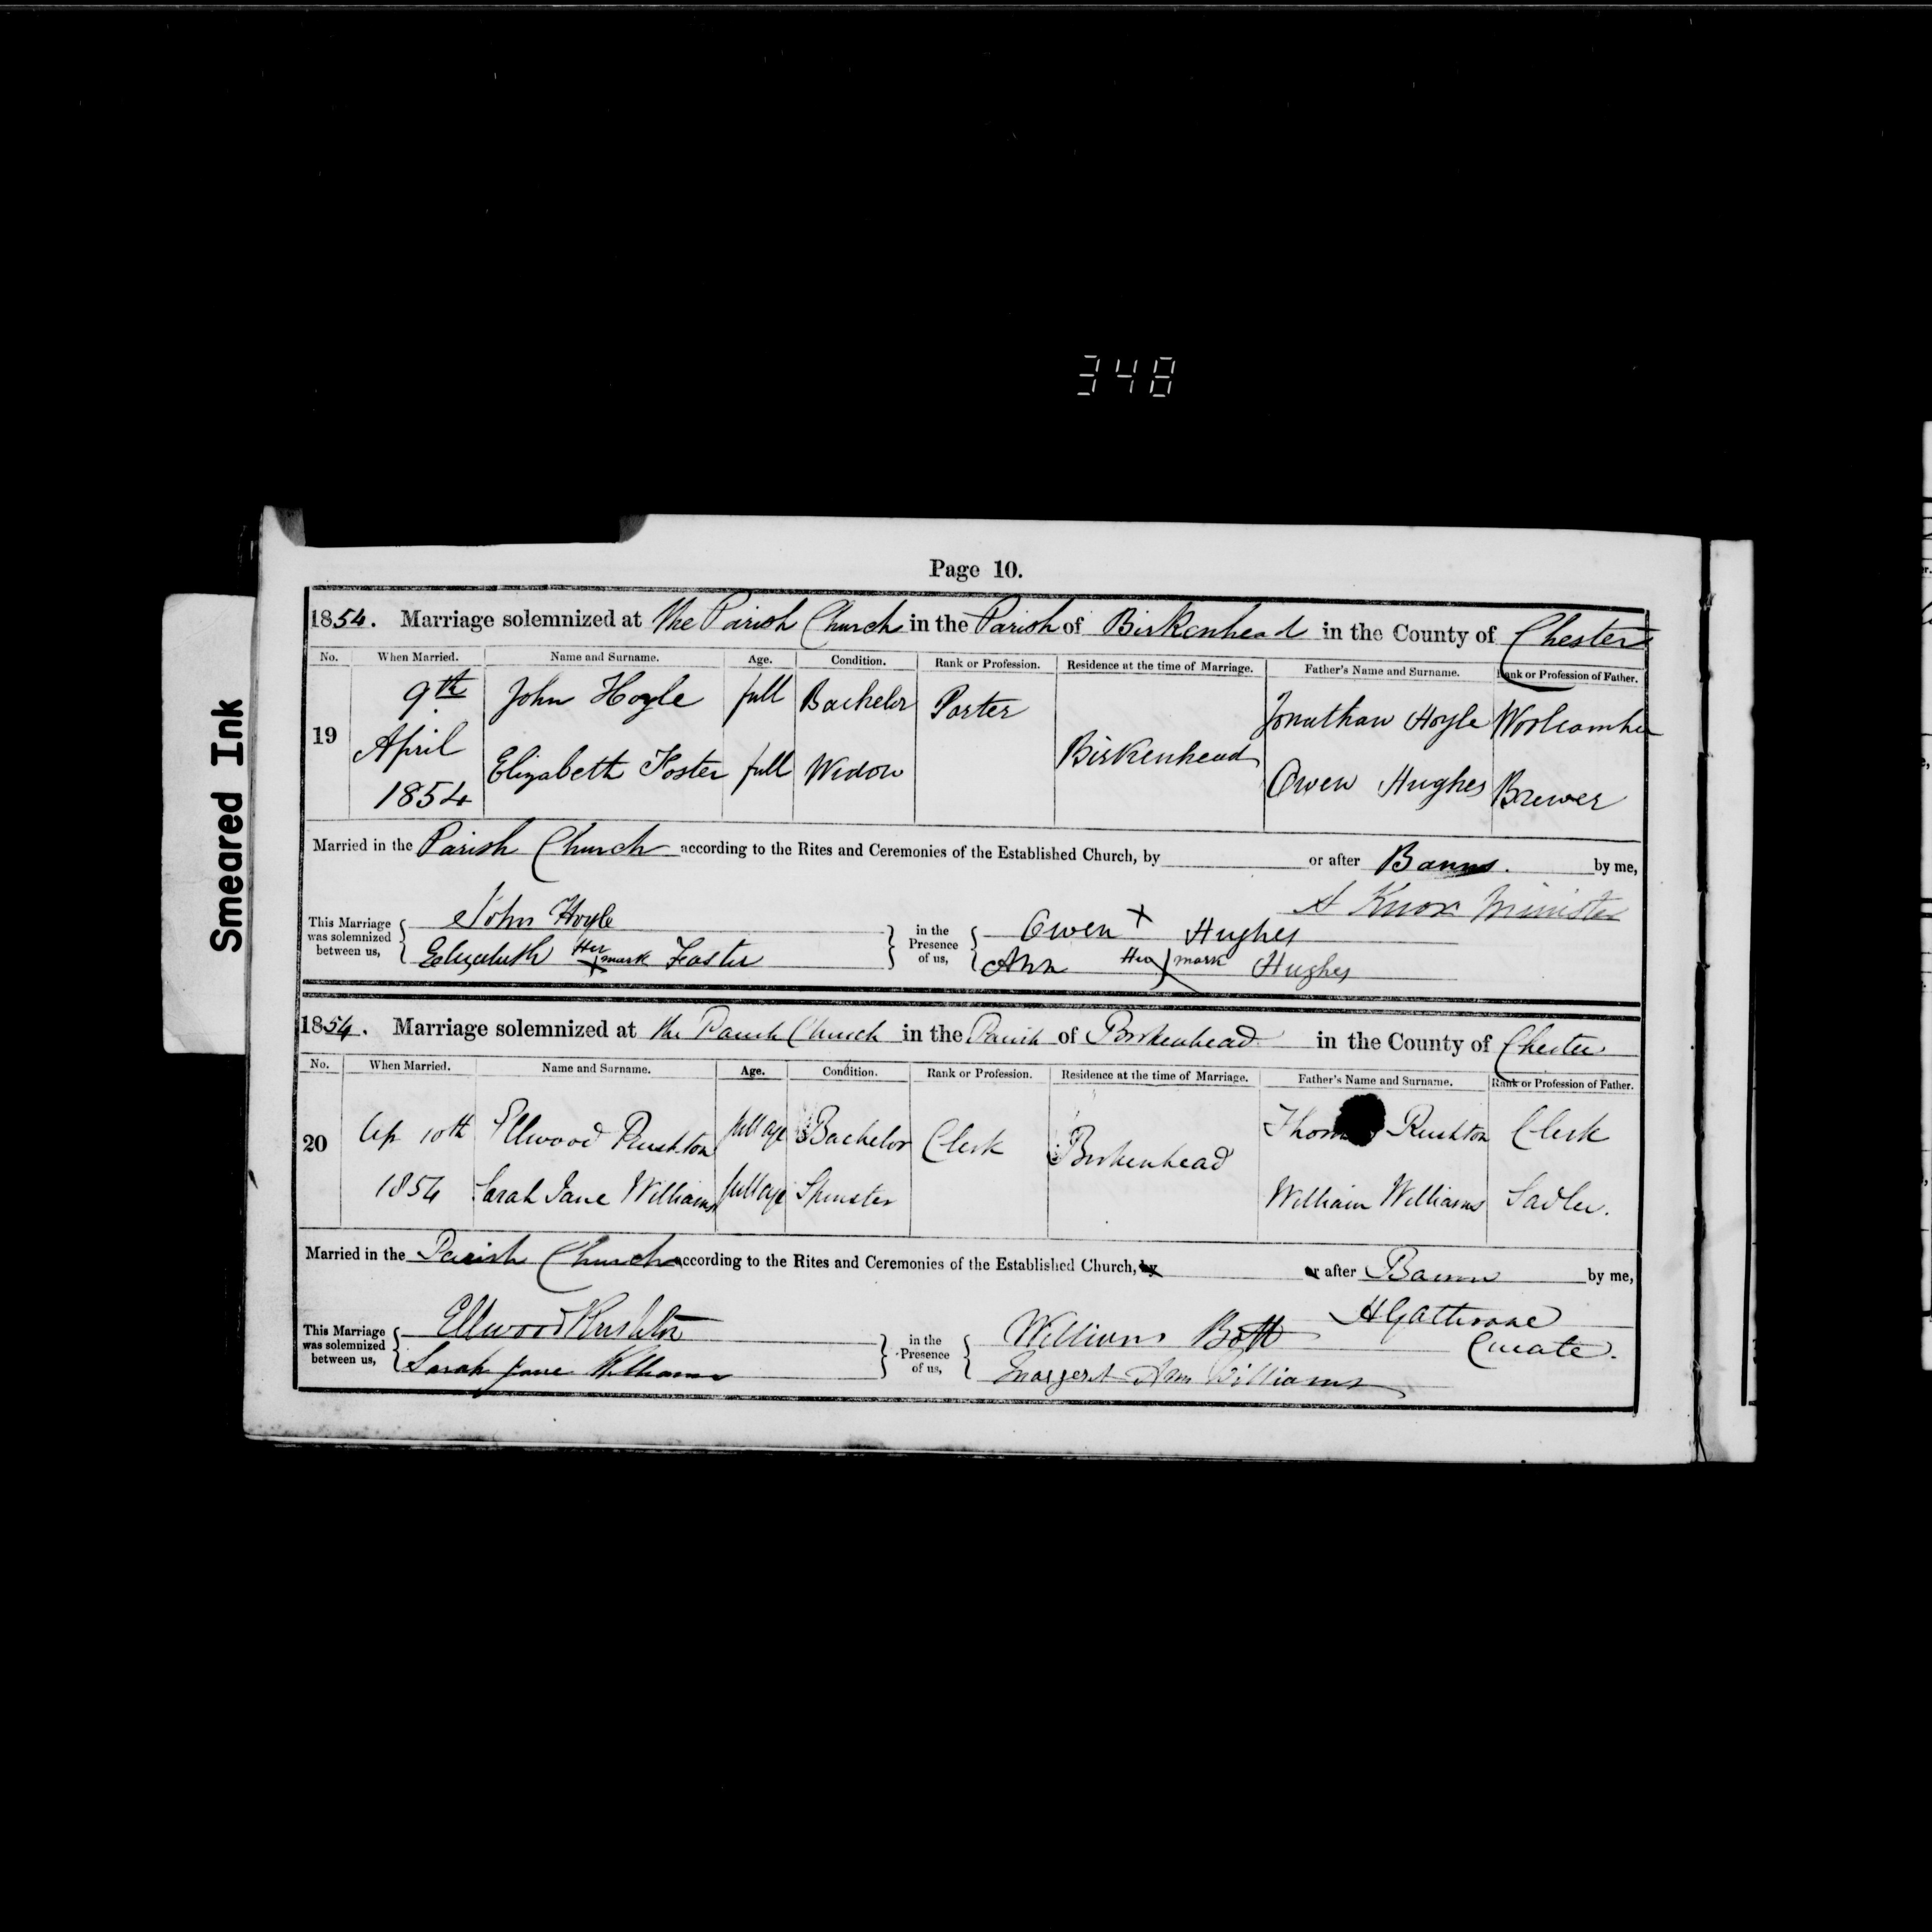 348
Smeared Ink
Page 10.
1854. Marriage solemnized at the Parish Church in the Parish of Birkenhead in the County of Chester
No. When Married. Name and Surname. Age. Condition. Rank or Profession. Residence at the time of Marriage. Father's Name and Surname. Rank or Profession of Father.
19 9th April 1854 John Hoyle full Bachelor Porter Birkenhead Jonathan Hoyle Woolcomber
Elizabeth Foster full Widow Owen Hughes Brewer
Married in the Parish Church according to the Rites and Ceremonies of the Established Church, by or after Banns. by me,
A Knox Minister
This Marriage was solemnized between us, John Hoyle in the Presence of us, Owen X Hughes
Elizabeth Her X mark Foster Ann Her X mark Hughes
1854. Marriage solemnized at the Parish Church in the Parish of Birkenhead in the County of Chester
No. When Married. Name and Surname. Age. Condition. Rank or Profession. Residence at the time of Marriage. Father's Name and Surname. Rank or Profession of Father.
20 Ap 10th Ellwood Rushton full age Bachelor Clerk Birkenhead Thomas Rushton Clerk
1854 Sarah Jane Williams full age Spinster William Williams Sadler.
Married in the Parish Church according to the Rites and Ceremonies of the Established Church, by or after Banns by me,
Curate.
This Marriage was solemnized between us, Ellwood Rushton in the Presence of us, William Bott
Sarah Jane Williams Margeret Ann Williams